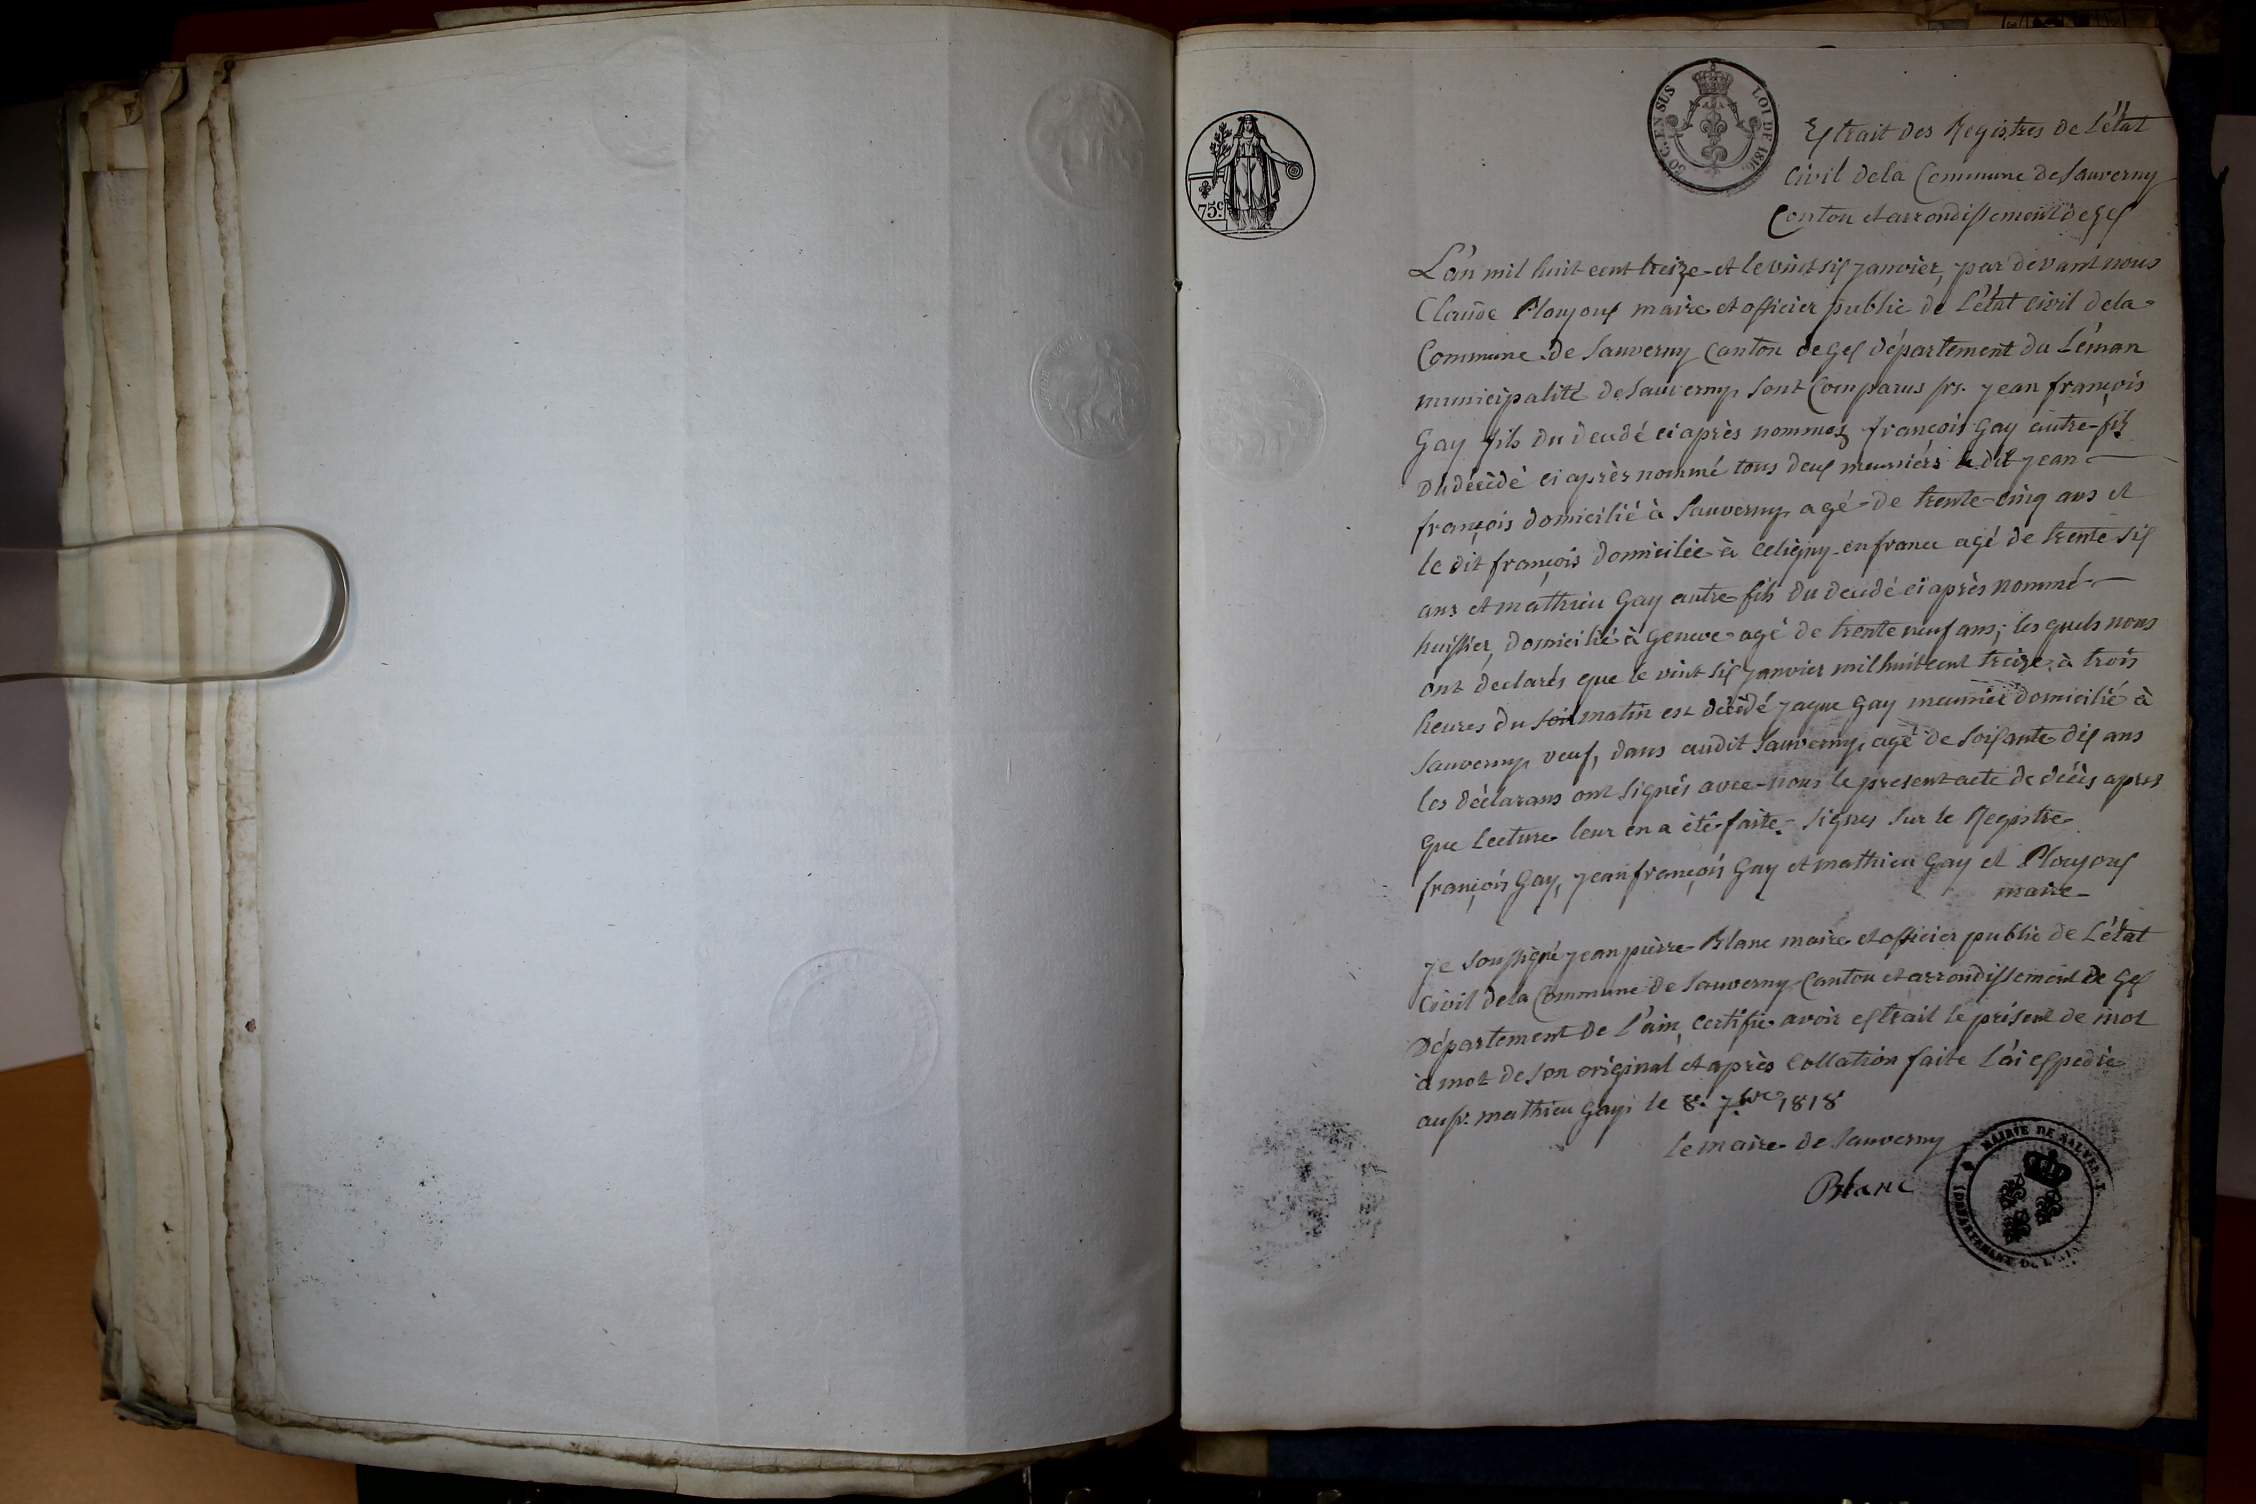 30 C. EN SUS
LOI DE 1816.
75 c.
Extrait des Registres de L'état
Civil dela Commune de Sauverny
Canton et arrondissement de Gex
L'an mil huit cent treize et le vint six janvier, par devant nous
Claude Ploujoux maire et officier public de L'état civil dela
Commune de Sauverny Canton de Gex département du Léman
municipalité de Sauverny sont Comparus sr. jean françois
Gay fils du décédé ci après nommez françois Gay autre fils
Du décédé ci après nommé tous deux meuniérs le dit jean
françois domicilié à Sauverny agé de trente cinq ans et
le dit françois domicilié à Celigny en france agé de trente six
ans et mathieu Gay autre fils du décédé ci après nommé
huissier, domicilié à Geneve agé de trente neuf ans; les quels nous
ont declarés que le vint six janvier mil huit cent treize à trois
heures du soir matin est décédé jaque Gay meunier domicilié à
Sauverny veuf, dans audit Sauverny, agé de soixante dix ans
les déclarans ont signés avec nous le present acte de décès apres
que lecture leur en a été faite. Signes sur le Registre
françois Gay, jean françois Gay et mathieu Gay et Ploujoux
maire
je soussigné jean pierre Blanc maire et officier public de L'état
Civil dela Commune de Sauverny Canton et arrondissement de Gex
Département de l'ain, certifie avoir extrait le présent de mot
à mot de son original et après collation faite l'ai expedié
au sr. mathieu Gay; le 8. 7bre 1818
Le maire de Sauverny
Blanc
MAIRIE DE SAUVERNY
DÉPARTEMENT DE L'AIN